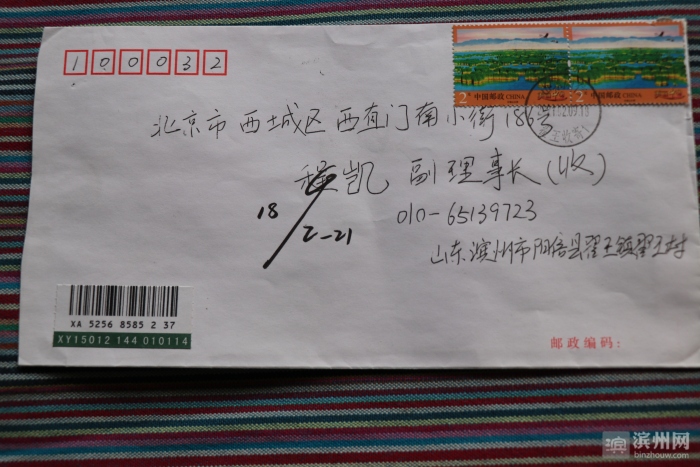 100032
2 中国邮政 CHINA
2 中国邮政 CHINA
北京市西城区西直门南小街186号
程凯 副理事长(收)
010-65139723
18/2-21
山东滨州市阳信县翟王镇翟王村
XA 5256 8585 2 37
XY15012 144 010114
邮政编码:
滨 滨州网
binzhouw.com